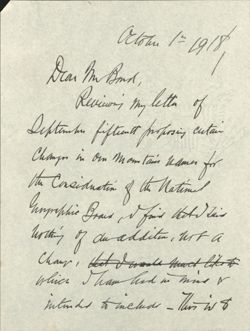 October 1st 1918
Dear Mr Bond,
Reviewing my letter of
September fifteenth proposing certain
changes in our mountain names for
the Consideration of the National
Geographic Board, I find that I said
nothing of an addition, not a
change, that I would much like to
which I have had in mind &
intended to include - This is to